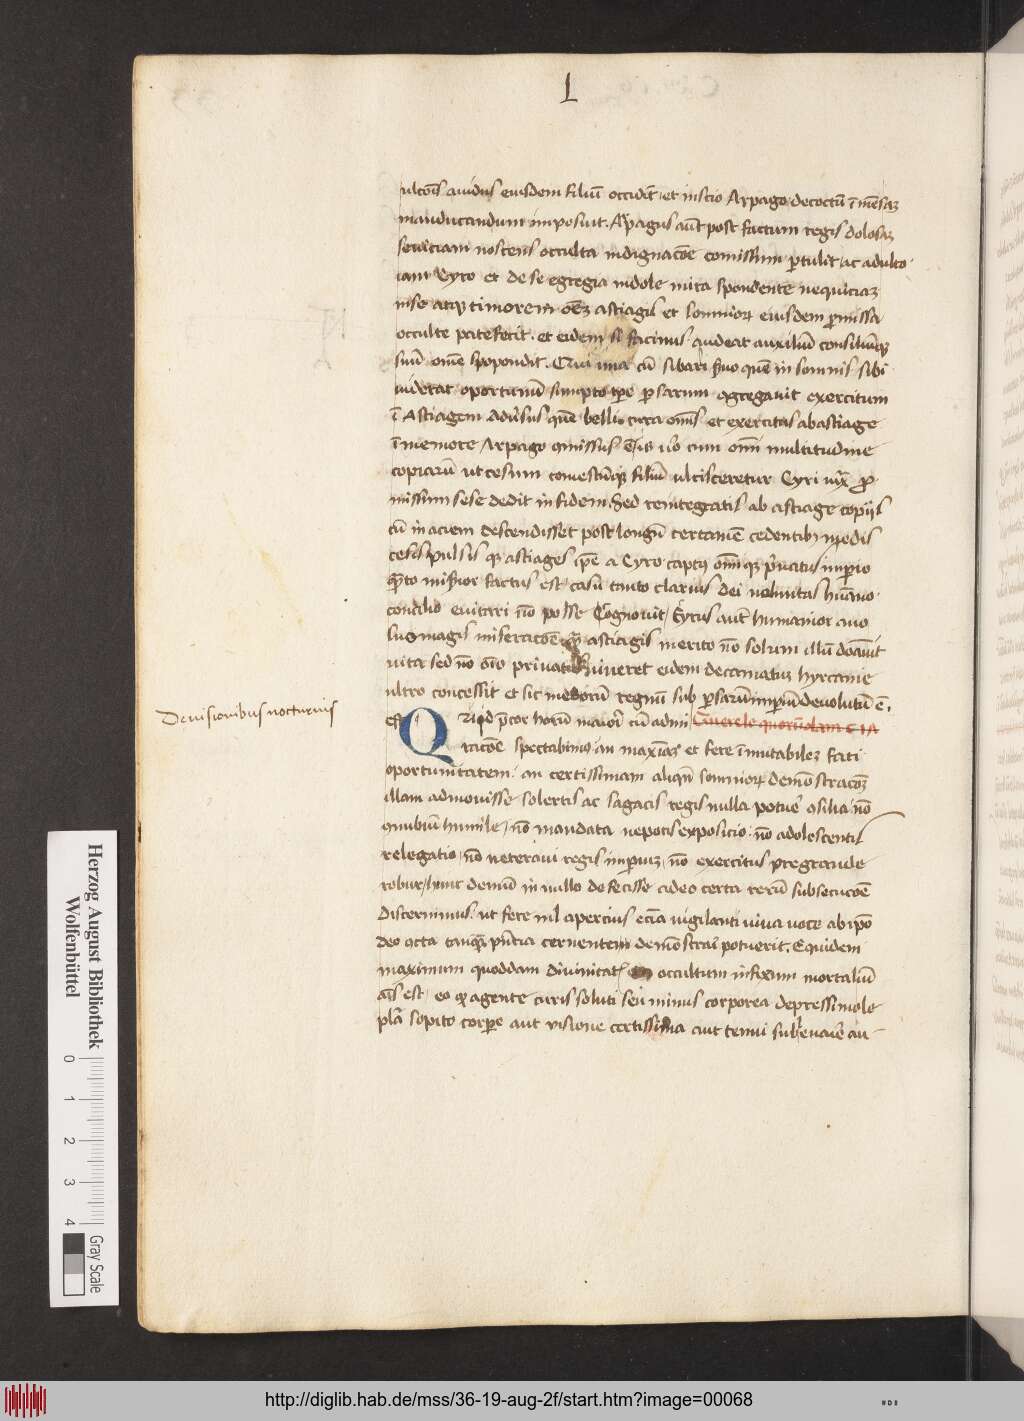 L
ultōis auidus eiusdem filiū occidit et inscio Arpago decoctū ī mēsaʒ
manducandum imposuit. Arpagus aūt post factum regis dolosaʒ
seuiciam noscens occulta indignacōe comissum ꝑtulit ac adulto
iam Cyro et de se egregia indole mira spondente nequiciaʒ
in se atqʒ timorem oēʒ astiagis et somnioꝝ eiusdem ꝓmissa
occulte patefecit. et eidem si facinus audeat auxiliū consiliūqʒ
suū om̄e spopondit. Qui una cū sibari ẜuo quē in somnis sibi
uiderat oportunū sumpto tꝑe ꝑsarum ꝯgregauit exercitum
ī Astiagem aduersus quē belli cura om̄is et exercitus ab astiage
īmemore Arpago ꝯmissus ē is uo cum om̄i multitudine
copiarū ut cesum comestūqʒ filiū ulcisceretur Cyri iux̄ ꝓ
missum sese dedit in fidem. Sed reintegratis ab astiage copijs
cū in aciem descendisset post longū certamē cedentibʒ medis
cesis pulsis qʒ astiages ip̄e a Cyro captus om̄iqʒ priuatus imꝑio
 factus est casū tanto clarius dei uoluntas hūano
concilio euitari nō posse Cognouit, Cyrus aūt humanior auo
lus magis miseracōe astiagis merito nō solum illū dōauit
uita sed nō aīo priuatus uiueret eidem decamatus hyrcanie
ultro concessit et sic medorū regnū sub ꝑsarū imꝑiū deuolutū ē.
De uisionibus nocturnis
est Quid p̄cor horū maiori cū admi Querele quorūdam CIA
racōe spectabimus an maximas et fere īmutabiles fati
oportunitatem. an certissimam aliqm̄ somnioꝝ demōstracōeʒ
illam admouisse solertis ac sagacis regis nulla potuer̄ ꝯsilia nō
ꝯnubiū humile, nō mandata nepotis exposicio. nō adolescentis
relegatio, nō ueterani regis imꝑium, nō exercitus pregrande
robur, hunc demū in nullo defecisse adeo certa rerū subsecucōe
discernimus. ut fere nil apercius eciā uigilanti uiua uoce ab ip̄o
deo acta tanqʒ pn̄tia cernentem demōstrari potuerit. Equidem
maximum quoddam diuinitatis occultum infixum mortaliū
aīs est, eo qʒ agente curis soluti seu minus corporea depressi mole
sopito corꝑe aut uisione certissima aut tenui subleuacē au
Herzog August Bibliothek
Wolfenbüttel
0 1 2 3 4
Gray Scale
http://diglib.hab.de/mss/36-19-aug-2f/start.htm?image=00068